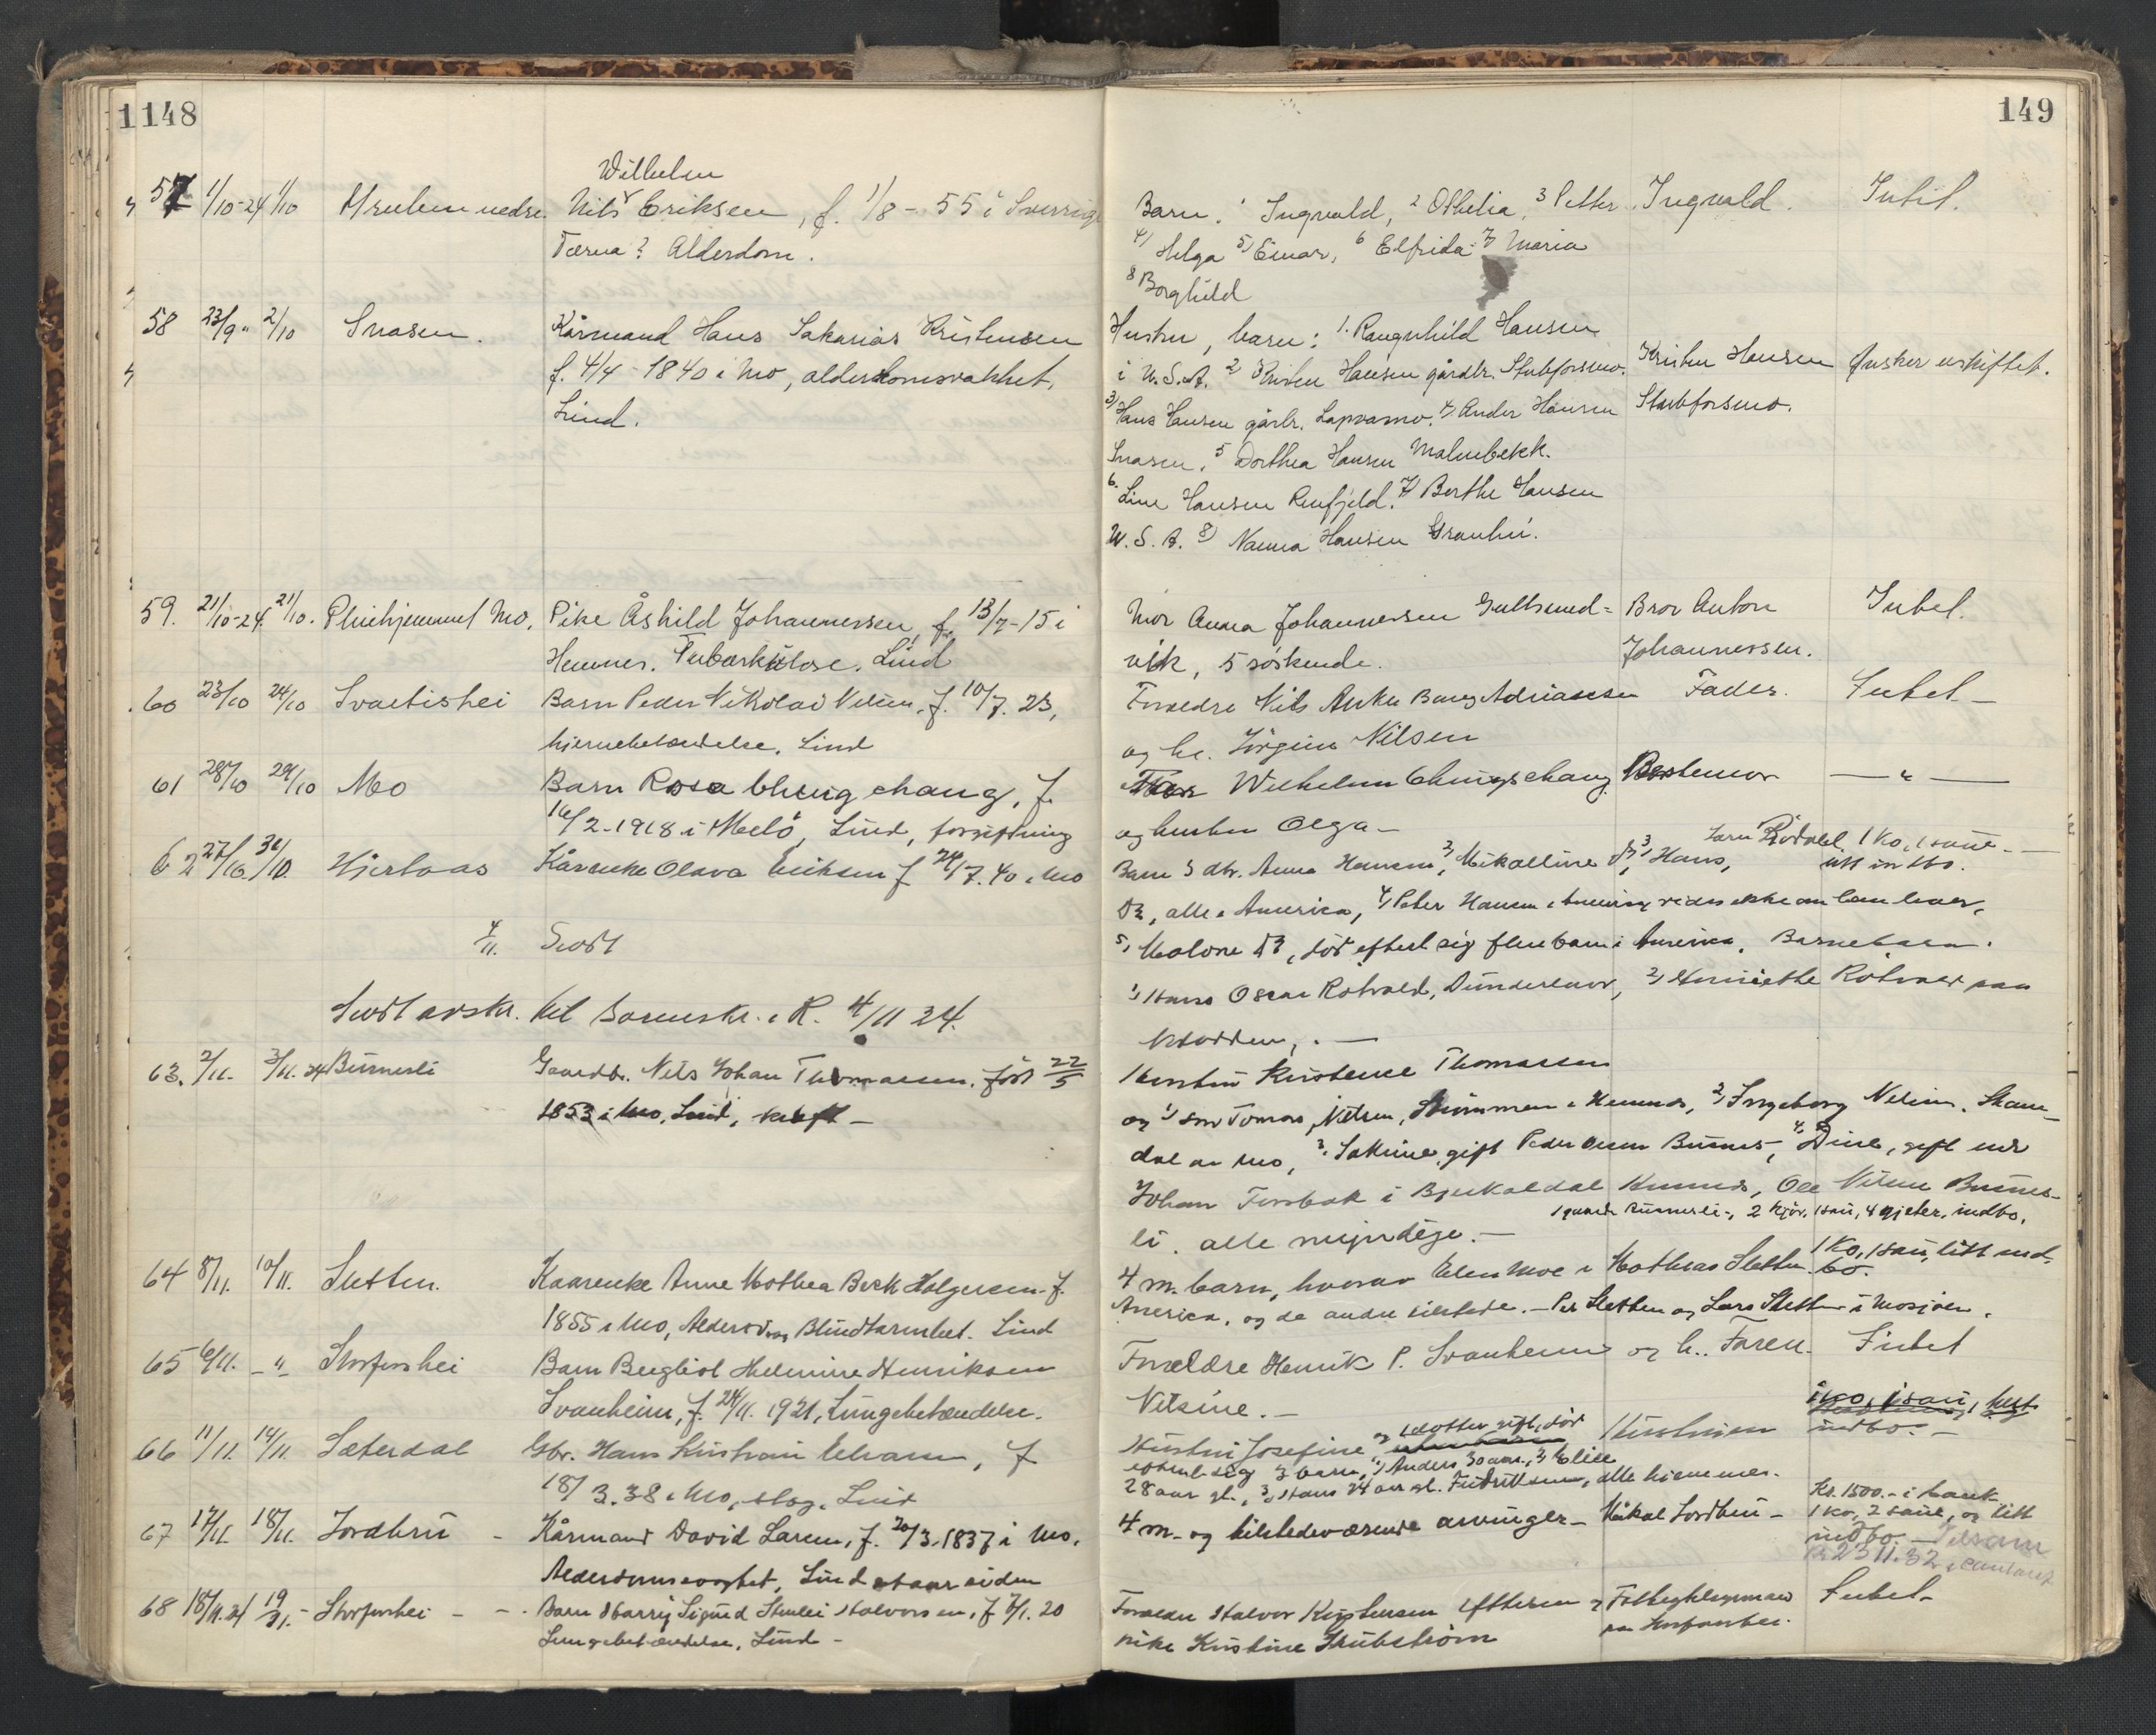 1148
149
Wilhelm
57 1/10-24 1/10 Nils Eriksen, f. 1/8-55 i Sverrig
Tærna? Alderdom.
Barn. 1 Ingvald, 2 Othelia, 3 Petter Ingvald. Intil.
4) Helga 5) Einar, 6 Elfrida 7) Maria
8 Borghild
58 23/9 " 2/10 Snasen. Kårmand Hans Sakarias Kristensen
f. 4/4-1840 i Mo, alderdomsvakhet.
Lind.
Hustru, barn: 1. Rangnhild Hansen
i U.S.A. 2 Kristen Hansen gårdbr. Stubforsmo. Kristen Hansen ønsker uskiftet.
3) Hans Hansen gårbr. Lapvamo. 4) Ander Hansen Stubforsmo.
Snasen, 5 Dorthea Hansen Malmbekk.
6. Line Hansen Renfjeld. 7) Berthe Hansen
U.S.A. 8) Nanna Hansen Granhei.
59. 21/10-24 21/10. Pleiehjemmet Mo, Pike Åshild Johannessen, f. 13/7-15 i
Hemnes. Tuberkulose. Lind
Mor Anna Johannessen Gullsmed= Bror Anton Intet.
vik, 5 söskende. Johannessen.
60 23/10 24/10 Svartishei Barn Peder Nikolai Nilsen, f. 10/7. 23,
hjernebetændelse. Lind
Forældre Nils Anker Bang Adriansen Fader. Intet—
og h. Jörgine Nilsen
61 28/10 29/10 Mo Barn Rosa Chung chang, f.
16/2-1918 i Melö, Lind, forgiftning
Far Wilhelm Chungschang Bestemor — " —
og hustru Olga—
62 27/10. 31/10. Hjertaas Kårenke Olava Eriksen f 24/7. 40 i Mo
Barn 3 dtr. Anna Hansen, 2) Mikalline do, 3) Hans, 1 ko, 1 saue.—
litt indbo.
do, alle i America, 4) Peter Hansen i America vides ikke om han lever,
5) do, död efterl. sig flere barn i America. Barnebarn.
4/11. Sendt
1) Hans Oscar Rötvold, Dunderland, 2)
Sendt avskr. til Sorenskr. i R. 4/11 24.
63. 2/11. 3/11. 24 Bumerli Gaardbr. Nils Johan Thomassen. född 22/5
1853 i Mo, Lind, kræft—
Hustru Kristence Thomassen
og 1) sön Tomas Nilsen, i Hemnes, 2) Ingeborg Nilsen,
dal av Mo, 3. gift Peder Olsen 4. Dine, gift med
Johan Forsbak i Bjerkadal Hemnes, Ole Nilsen
1 gaard 2 kjör, 1 sau, 4 gjeter, indbo.
li. alle myndige.—
64 8/11. 10/11. Sletten. Kaarenke Anne Mathea Beck Holgersen. f.
1855 i Mo, Alderdom Blindtarmbet. Lind
4 m. barn, hvorav Elen Moe i Mathias Sletten. 1 ko, 1 sau, litt ind-
bo.
America, og de andre tilstede.—Per Sletten og Lars Sletten i Mosjöen.
65 6/11. — " Storforshei Barn Bergliot Helmine Henriksen
Svanheim, f. 24/11. 1921, Lungebetændelse.
Forældre Henrik P. Svanheim og h. Faren. Intet
Nilsine.—
66 11/11. 14/11. Sæterdal Gbr. Hans Kristian Eliasen, f
18/3. 38 i Mo, slag. Lind
Hustru Josefine og 1 datter gift, död Hustruen 1 ko, 1 sau, 1 hest
indbo.—
efterl. sig 3 barn, 1) Anders 30 aar, 2) Elise
28 aar gl., 3) Hans 24 aar gl. Fridriksen, alle hjemme.
67 17/11. 18/11. Jordbru — Kårmand David Larsen, f. 20/3.1837 i Mo.
Alderdomssvaghet, Lind
4 m. og tilstedeværende arvinger— Mikal Jordbru— Kr. 1500.— i bank
1 ko, 2 saue, og litt
indbo.—
68 18/11. 24 19/11.— Storforshei — Barn Harry Sigurd Halvorsen, f 7/1. 20
Lungebetændelse, Lind—
Forældre Halvor Kristensen og Intet—
pike Kristine Stubström